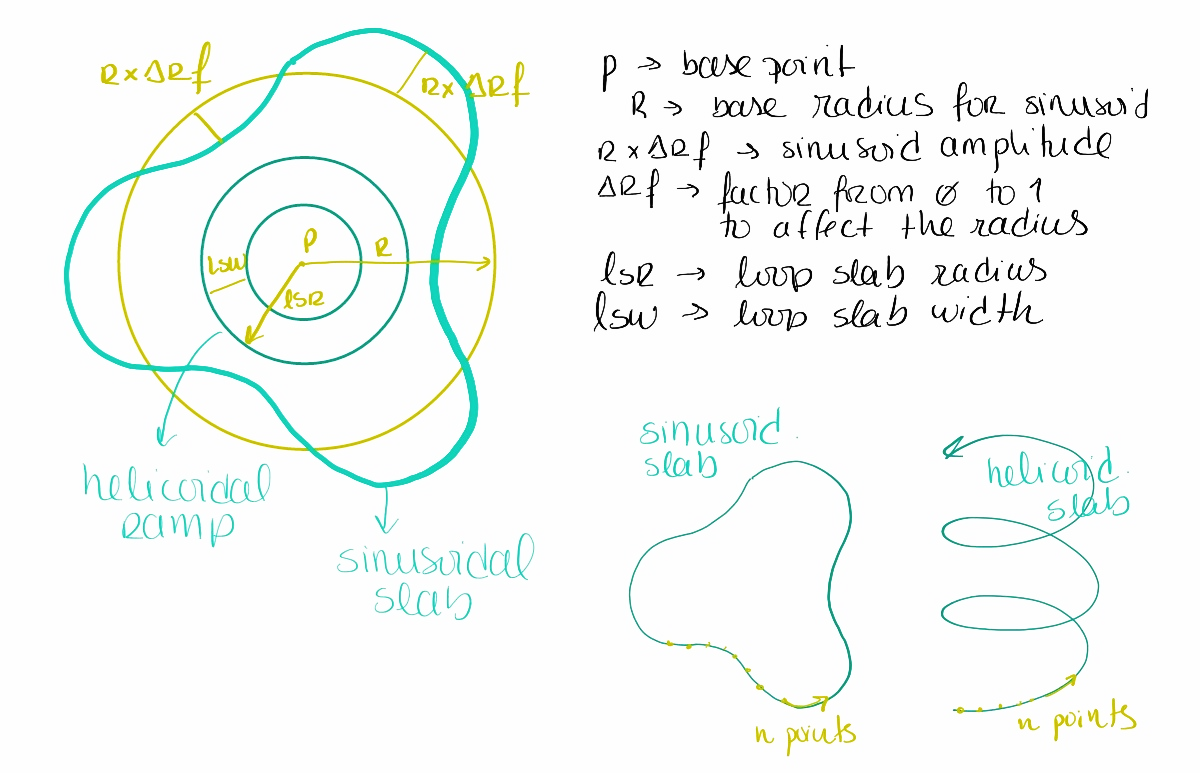 R×ΔRf
R×ΔRf
P
R
lsw
lsR
helicoidal
ramp
sinusoidal
slab
P → base point
R → base radius for sinusoid
R×ΔRf → sinusoid amplitude
ΔRf → factor from 0 to 1
to affect the radius
lsR → loop slab radius
lsw → loop slab width
sinusoid
slab
n points
helicoid
slab
n points